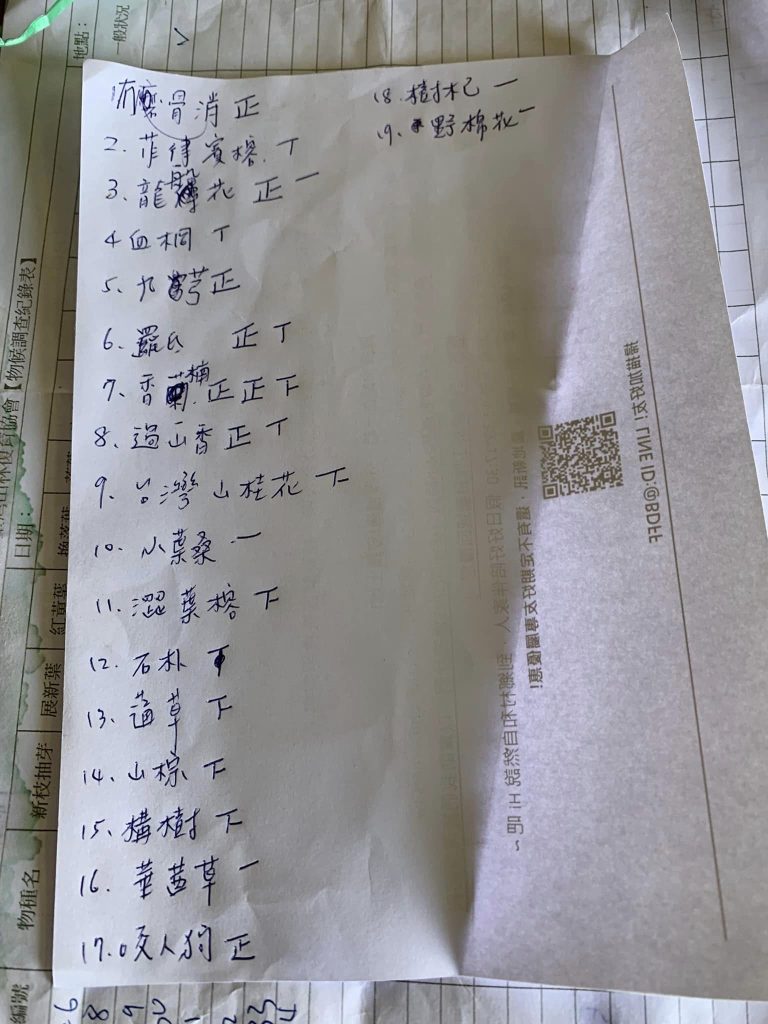 1. 有骨消 正
2. 菲律賓榕. 丅
3. 龍船花 正一
4 血桐 丅
5. 九芎 正
6. 羅氏 正丅
7. 香楠. 正正下
8. 過山香 正丅
9. 台灣山桂花 下
10. 小葉桑 一
11. 澀葉榕 下
12. 石朴 下
13. 蓪草 下
14. 山棕 下
15. 構樹 下
16. 華茜草 一
17. 咬人狗 正
18. 樹杞 一
19. 野棉花 一
地點：
般狀況
復育協會【物候調查紀錄表】
日期：
換落葉
紅黃葉
展新葉
新枝抽芽
物種名
編號